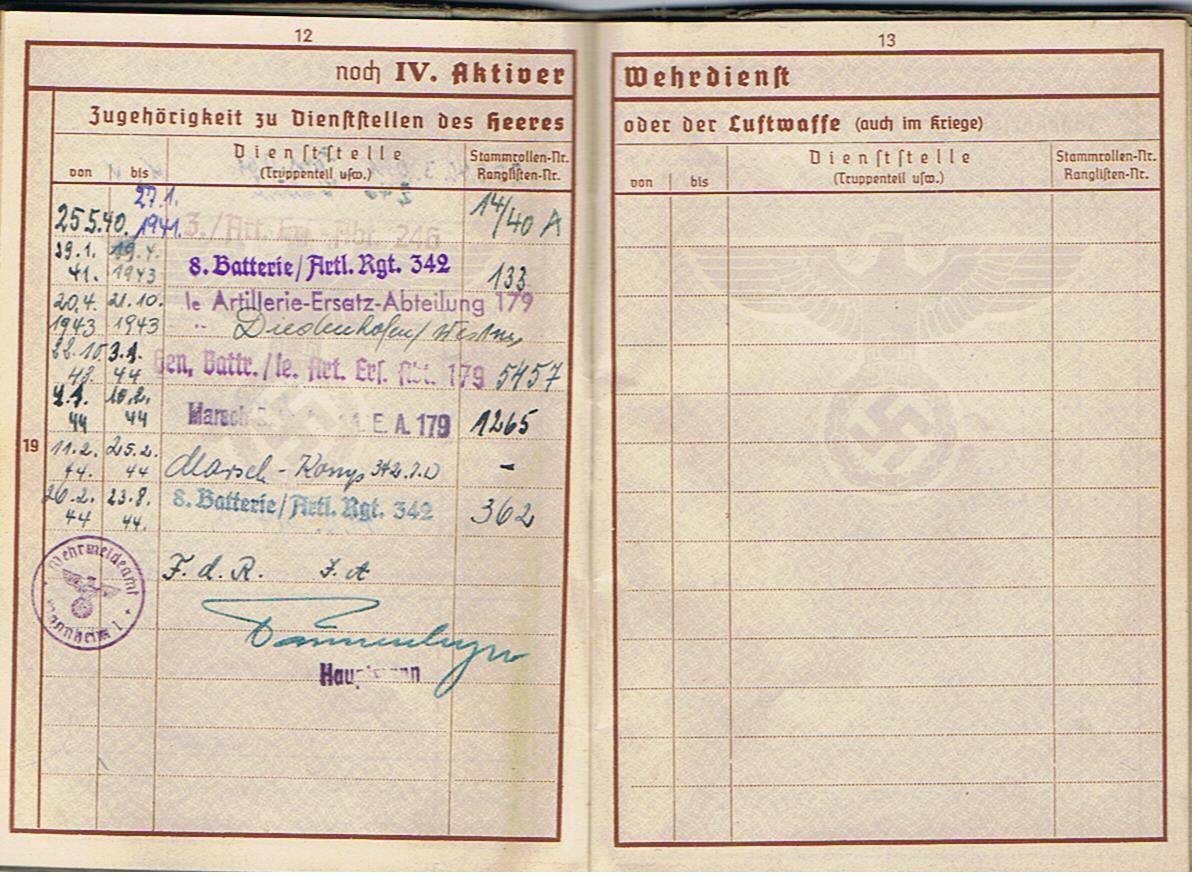 12
noch IV. Aktiver
Zugehörigkeit zu Dienststellen des Heeres
von bis Dienststelle (Truppenteil usw.) Stammrollen-Nr. Ranglisten-Nr.
25.5.40. 27.1. 1941. 3./Art. Ers.-Abt. 246 14/40 A
29.1. 41. 19.4. 1943 8. Batterie/Artl. Rgt. 342 133
20.4. 1943 21.10. 1943 le Artillerie-Ersatz-Abteilung 179
Diedenhofen/
22.10. 43. 3.1. 44 Gen. Battr./le. Art. Ers. Abt. 179 5457
4.1. 44 10.2. 44 Marsch E. A. 179 1265
19
11.2. 44. 25.2. 44 Marsch-Komp 342. I.D -
26.2. 44 23.8. 44. 8. Batterie/Artl. Rgt. 342 362
Wehrmeldeamt
Mannheim 1
F. d. R. I. A
Hauptmann
13
Wehrdienst
oder der Luftwaffe (auch im Kriege)
von bis Dienststelle (Truppenteil usw.) Stammrollen-Nr. Ranglisten-Nr.